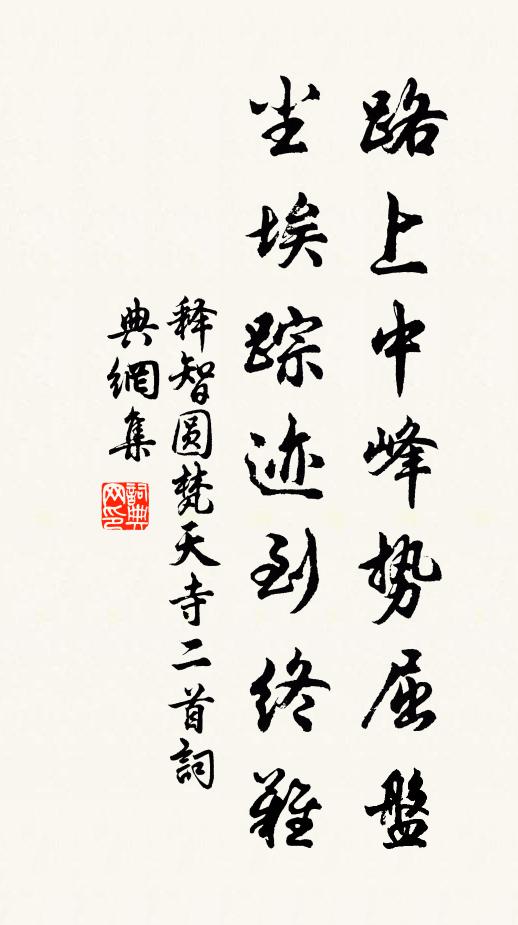 路上中峰势屈盤
尘埃踪迹到终难
释智圆梵天寺二首詞
典網集
詞典网印